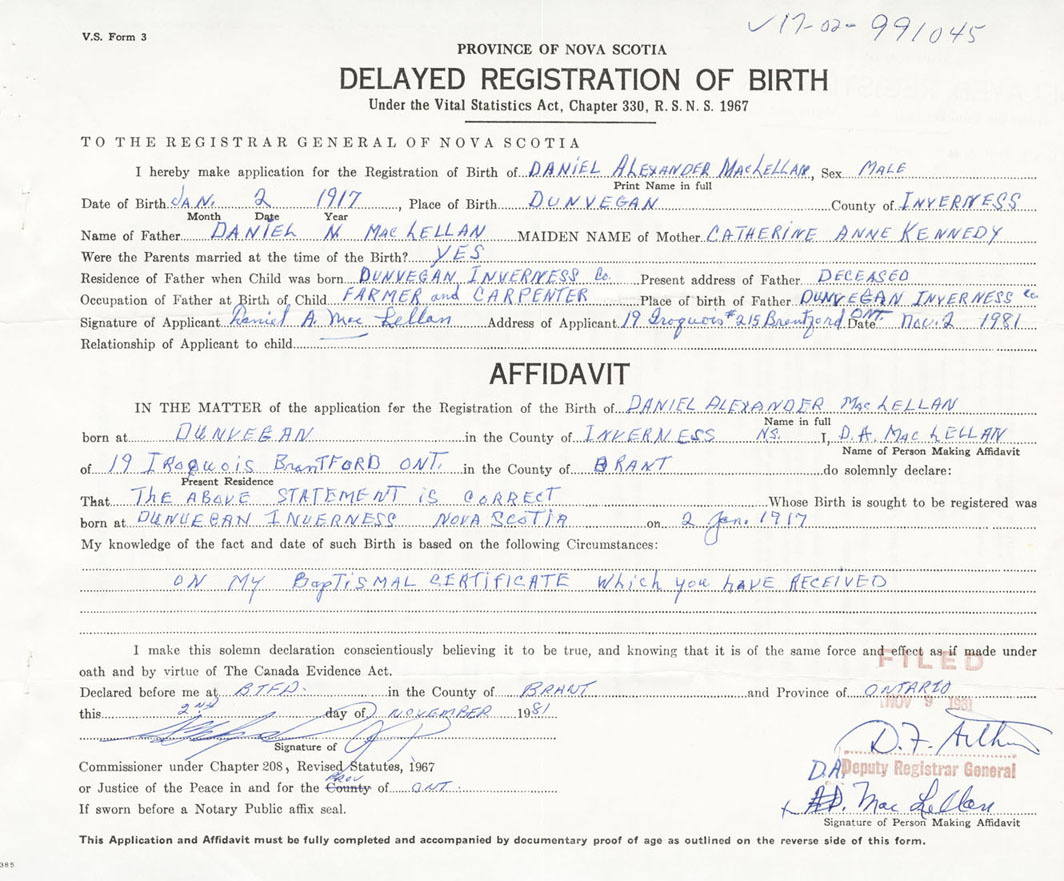 V.S. Form 3
✓ 17-02-991045
PROVINCE OF NOVA SCOTIA
DELAYED REGISTRATION OF BIRTH
Under the Vital Statistics Act, Chapter 330, R.S.N.S. 1967
TO THE REGISTRAR GENERAL OF NOVA SCOTIA
I hereby make application for the Registration of Birth of DANIEL ALEXANDER MacLELLAN, Sex MALE
Print Name in full
Date of Birth JAN. 2 1917, Place of Birth DUNVEGAN County of INVERNESS
Month Date Year
Name of Father DANIEL N MACLELLAN MAIDEN NAME of Mother CATHERINE ANNE KENNEDY
Were the Parents married at the time of the Birth? YES
Residence of Father when Child was born DUNVEGAN INVERNESS Co. Present address of Father DECEASED
Occupation of Father at Birth of Child FARMER and CARPENTER Place of birth of Father DUNVEGAN INVERNESS Co
Signature of Applicant Daniel A. Mac Lellan Address of Applicant 19 Iroquois #215 Brentford ONT. Date Nov. 2 1981
Relationship of Applicant to child
AFFIDAVIT
IN THE MATTER of the application for the Registration of the Birth of DANIEL ALEXANDER MacLELLAN
Name in full
born at DUNVEGAN in the County of INVERNESS NS. I, D.A. MacLELLAN
Name of Person Making Affidavit
of 19 IROQUOIS BRANTFORD ONT. in the County of BRANT do solemnly declare:
Present Residence
That THE ABOVE STATEMENT iS CORRECT Whose Birth is sought to be registered was
born at DUNVEGAN INVERNESS NOVA SCOTIA on 2 Jan. 1917
My knowledge of the fact and date of such Birth is based on the following Circumstances:
ON MY BapTiSMAL CERTIFICATE Which you HAVE RECEIVED
I make this solemn declaration conscientiously believing it to be true, and knowing that it is of the same force and effect as if made under
FILED
oath and by virtue of The Canada Evidence Act.
Declared before me at BTFD. in the County of BRANT and Province of ONTARIO
NOV 9 1981
this 2ND day of NOVEMBER 1981
Signature of
D.F. Arthur
Commissioner under Chapter 208, Revised Statutes, 1967
D.A. Deputy Registrar General
or Justice of the Peace in and for the County PROV of ONT.
Mac Lellan
If sworn before a Notary Public affix seal.
Signature of Person Making Affidavit
This Application and Affidavit must be fully completed and accompanied by documentary proof of age as outlined on the reverse side of this form.
385